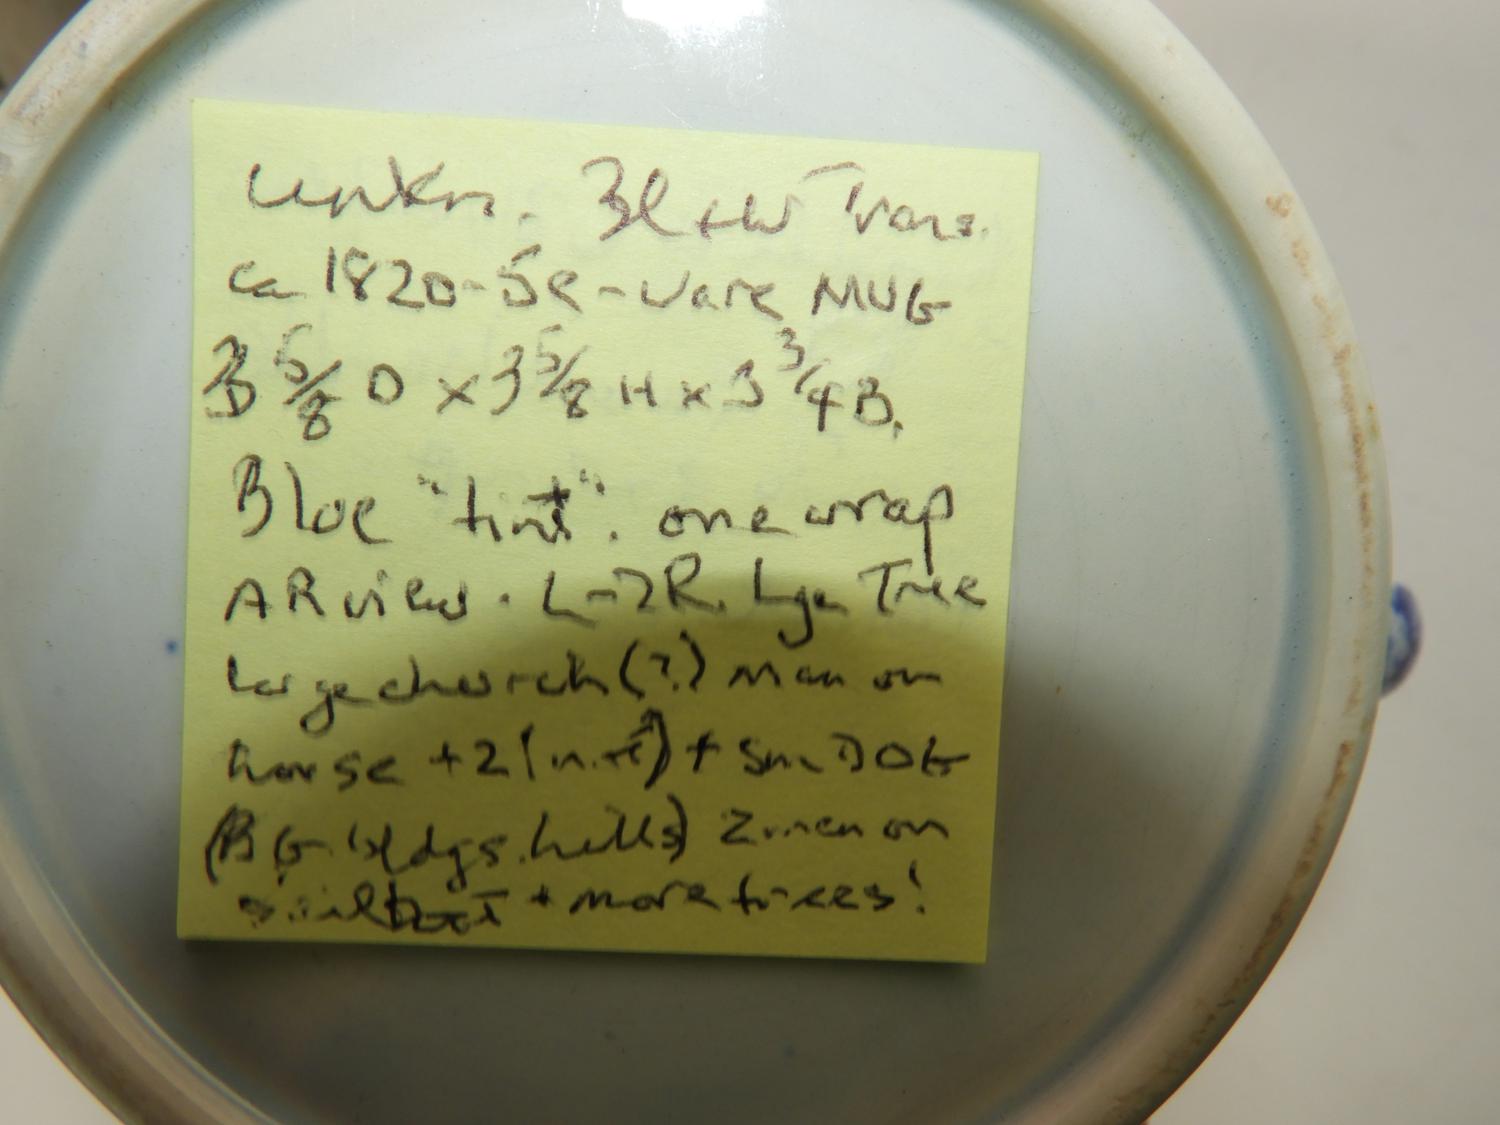 unkn. Bl + W Trans.
ca 1820-S e-ware MUG
3 5/8 D x 3 5/8 H x 3 3/4 B.
Blue "tint". one wrap
AR view. L->R. Lge Tree
large church (?) man on
horse + 2 + sm DOG
(BG. bldgs. hills) 2 men on
sailboat + more trees!